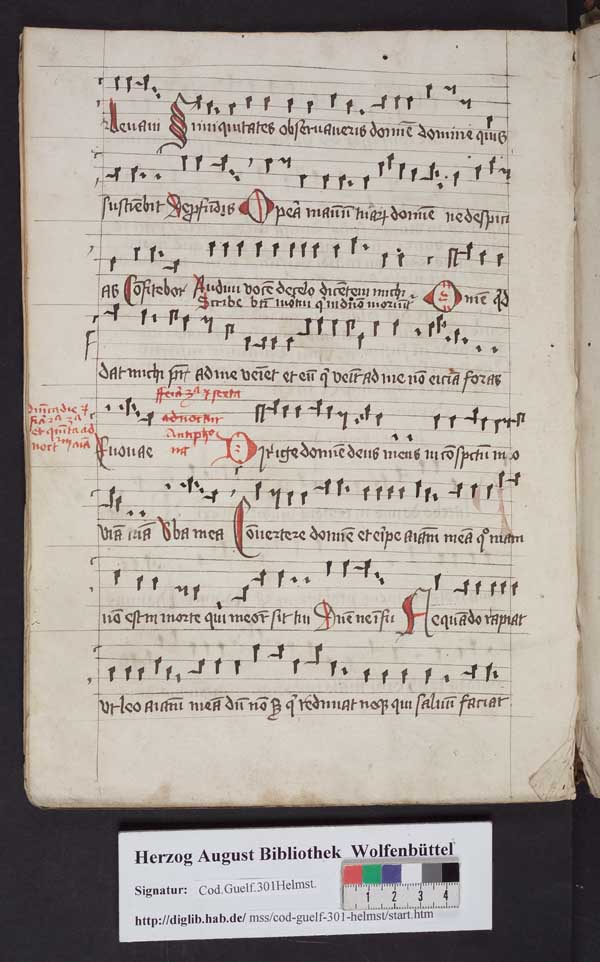 Levavi Si iniquitates observaveris domine domine quis
sustinebit De profundis Opera manuum tuarum domine ne despici
as Confitebor Audivi vocem de celo dicentem michi Omne quod
Scribe
dat michi pater ad me veniet et eum qui venit ad me non eiciam foras
feria et sexta
ad nocturnum
Antipho
na
Euouae Dirige domine deus meus in conspectu tuo
viam meam Verba mea Convertere domine et eripe animam meam quoniam
non est in morte qui memor sit tui Domine ne in fu Nequando rapiat
ut leo animam meam dum non est qui redimat neque qui salvum faciat
Herzog August Bibliothek Wolfenbüttel
Signatur: Cod.Guelf.301Helmst.
http://diglib.hab.de/ mss/cod-guelf-301-helmst/start.htm
1 2 3 4